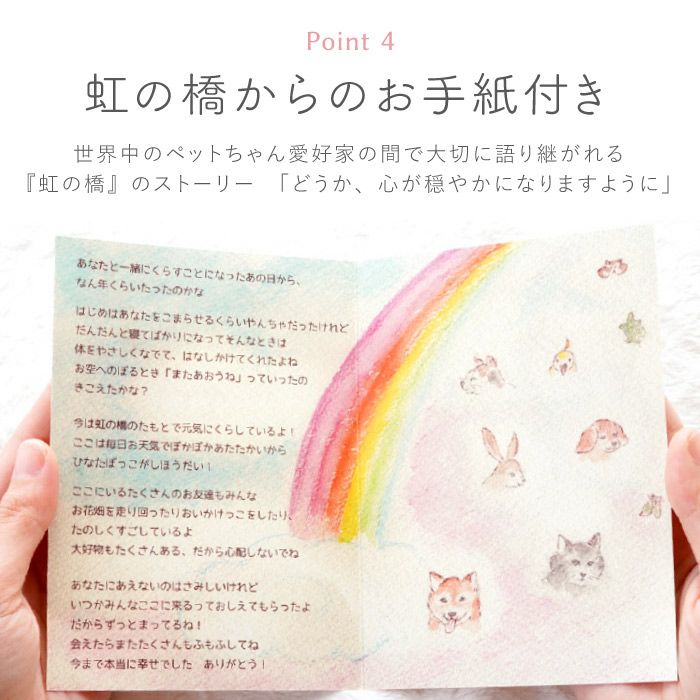 Point 4
虹の橋からのお手紙付き
世界中のペットちゃん愛好家の間で大切に語り継がれる
『虹の橋』のストーリー 「どうか、心が穏やかになりますように」
あなたと一緒にくらすことになったあの日から、
なん年くらいたったのかな
はじめはあなたをこまらせるくらいやんちゃだったけれど
だんだんと寝てばかりになってそんなときは
体をやさしくなでて、はなしかけてくれたよね
お空へのぼるとき「またあおうね」っていったの
きこえたかな？
今は虹の橋のたもとで元気にくらしているよ！
ここは毎日お天気でぽかぽかあたたかいから
ひなたぼっこがしほうだい！
ここにいるたくさんのお友達もみんな
お花畑を走り回ったりおいかけっこをしたり、
たのしくすごしているよ
大好物もたくさんある、だから心配しないでね
あなたにあえないのはさみしいけれど
いつかみんなここに来るっておしえてもらったよ
だからずっとまってるね！
会えたらまたたくさんもふもふしてね
今まで本当に幸せでした ありがとう！